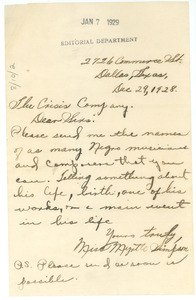 JAN 7 1929
EDITORIAL DEPARTMENT
2726 Commerce St.
Dallas, Texas,
Dec 29, 1928.
The Crisis Company.
Dear Sirs:
Please send me the names
of as many Negro musicians
and composers that you
can. Telling something about
his life, birth, one of his
works, or a main event
in his life
Yours truly
Miss Myrtle Simpson
P.S. Please send as soon as
possible.